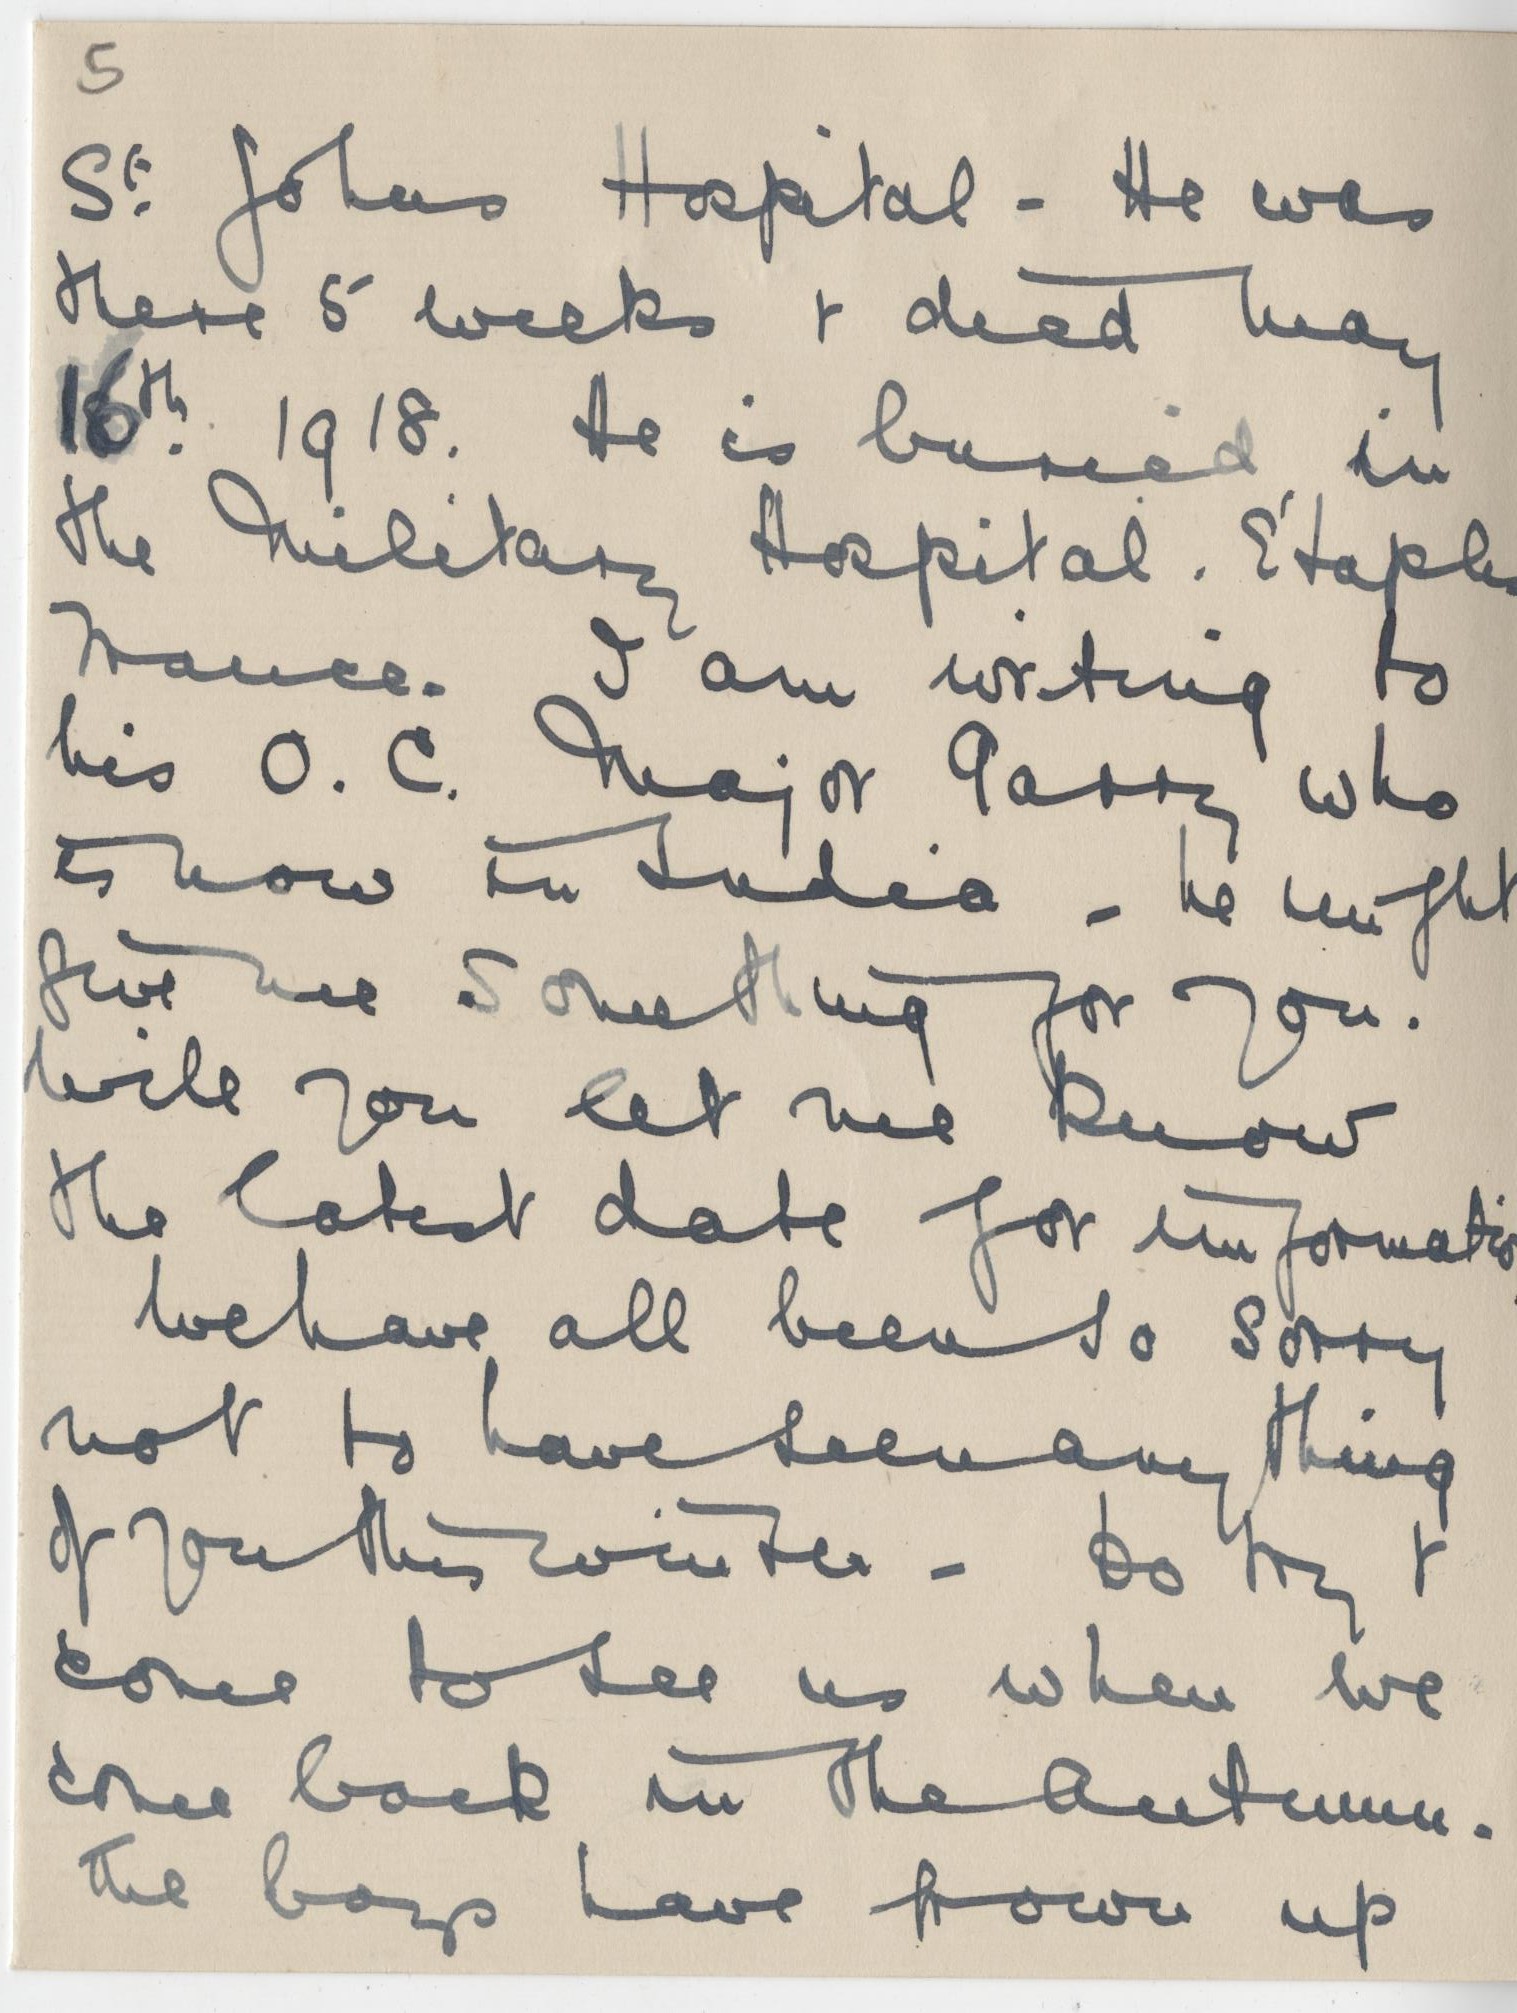 5
St. Johns Hospital - He was
there 5 weeks + died May
16th. 1918. He is buried in
the Military Hospital. Étaples
France. I am writing to
his O.C. Major Parry who
is now in India - he might
give me something for you.
Will you let me know
the latest date for informatio
We have all been so sorry
not to have seen anything
of you this winter - Do try +
come to see us when we
come back in the Autumn.
The boys have grown up